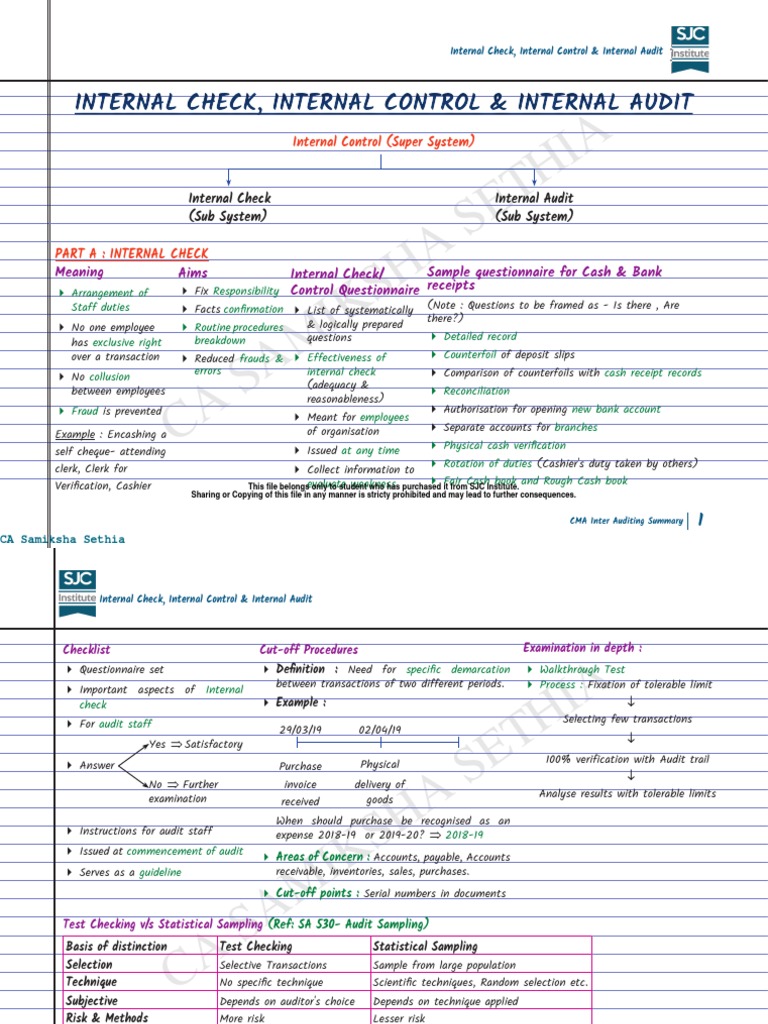 Internal Check, Internal Control & Internal Audit
SJC
Institute
INTERNAL CHECK, INTERNAL CONTROL & INTERNAL AUDIT
Internal Control (Super System)
Internal Check
(Sub System)
Internal Audit
(Sub System)
PART A : INTERNAL CHECK
Meaning
Arrangement of
Staff duties
No one employee
has exclusive right
over a transaction
No collusion
between employees
Fraud is prevented
Example : Encashing a
self cheque- attending
clerk, Clerk for
Verification, Cashier
Aims
Fix Responsibility
Facts confirmation
Routine procedures
breakdown
Reduced frauds &
errors
Internal Check/
Control Questionnaire
List of systematically
& logically prepared
questions
Effectiveness of
internal check
(adequacy &
reasonableness)
Meant for employees
of organisation
Issued at any time
Collect information to
evaluate weakness
Sample questionnaire for Cash & Bank
receipts
(Note : Questions to be framed as - Is there , Are
there?)
Detailed record
Counterfoil of deposit slips
Comparison of counterfoils with cash receipt records
Reconciliation
Authorisation for opening new bank account
Separate accounts for branches
Physical cash verification
Rotation of duties (Cashier's duty taken by others)
Fair Cash book and Rough Cash book
This file belongs only to student who has purchased it from SJC Institute.
Sharing or Copying of this file in any manner is stricty prohibited and may lead to further consequences.
CMA Inter Auditing Summary
1
CA SAMIKSHA SETHIA
CA Samiksha Sethia
SJC
Institute
Internal Check, Internal Control & Internal Audit
Checklist
Questionnaire set
Important aspects of Internal
check
For audit staff
Answer
Yes ⇒ Satisfactory
No ⇒ Further
examination
Instructions for audit staff
Issued at commencement of audit
Serves as a guideline
Cut-off Procedures
Definition : Need for specific demarcation
between transactions of two different periods.
Example :
29/03/19 02/04/19
Purchase
invoice
received
Physical
delivery of
goods
When should purchase be recognised as an
expense 2018-19 or 2019-20? ⇒ 2018-19
Areas of Concern : Accounts, payable, Accounts
receivable, inventories, sales, purchases.
Cut-off points : Serial numbers in documents
Examination in depth :
Walkthrough Test
Process : Fixation of tolerable limit
↓
Selecting few transactions
↓
100% verification with Audit trail
↓
Analyse results with tolerable limits
Test Checking v/s Statistical Sampling (Ref: SA 530- Audit Sampling)
Basis of distinction Test Checking Statistical Sampling
Selection Selective Transactions Sample from large population
Technique No specific technique Scientific techniques, Random selection etc.
Subjective Depends on auditor's choice Depends on technique applied
Risk & Methods More risk Lesser risk
CA SAMIKSHA SETHIA